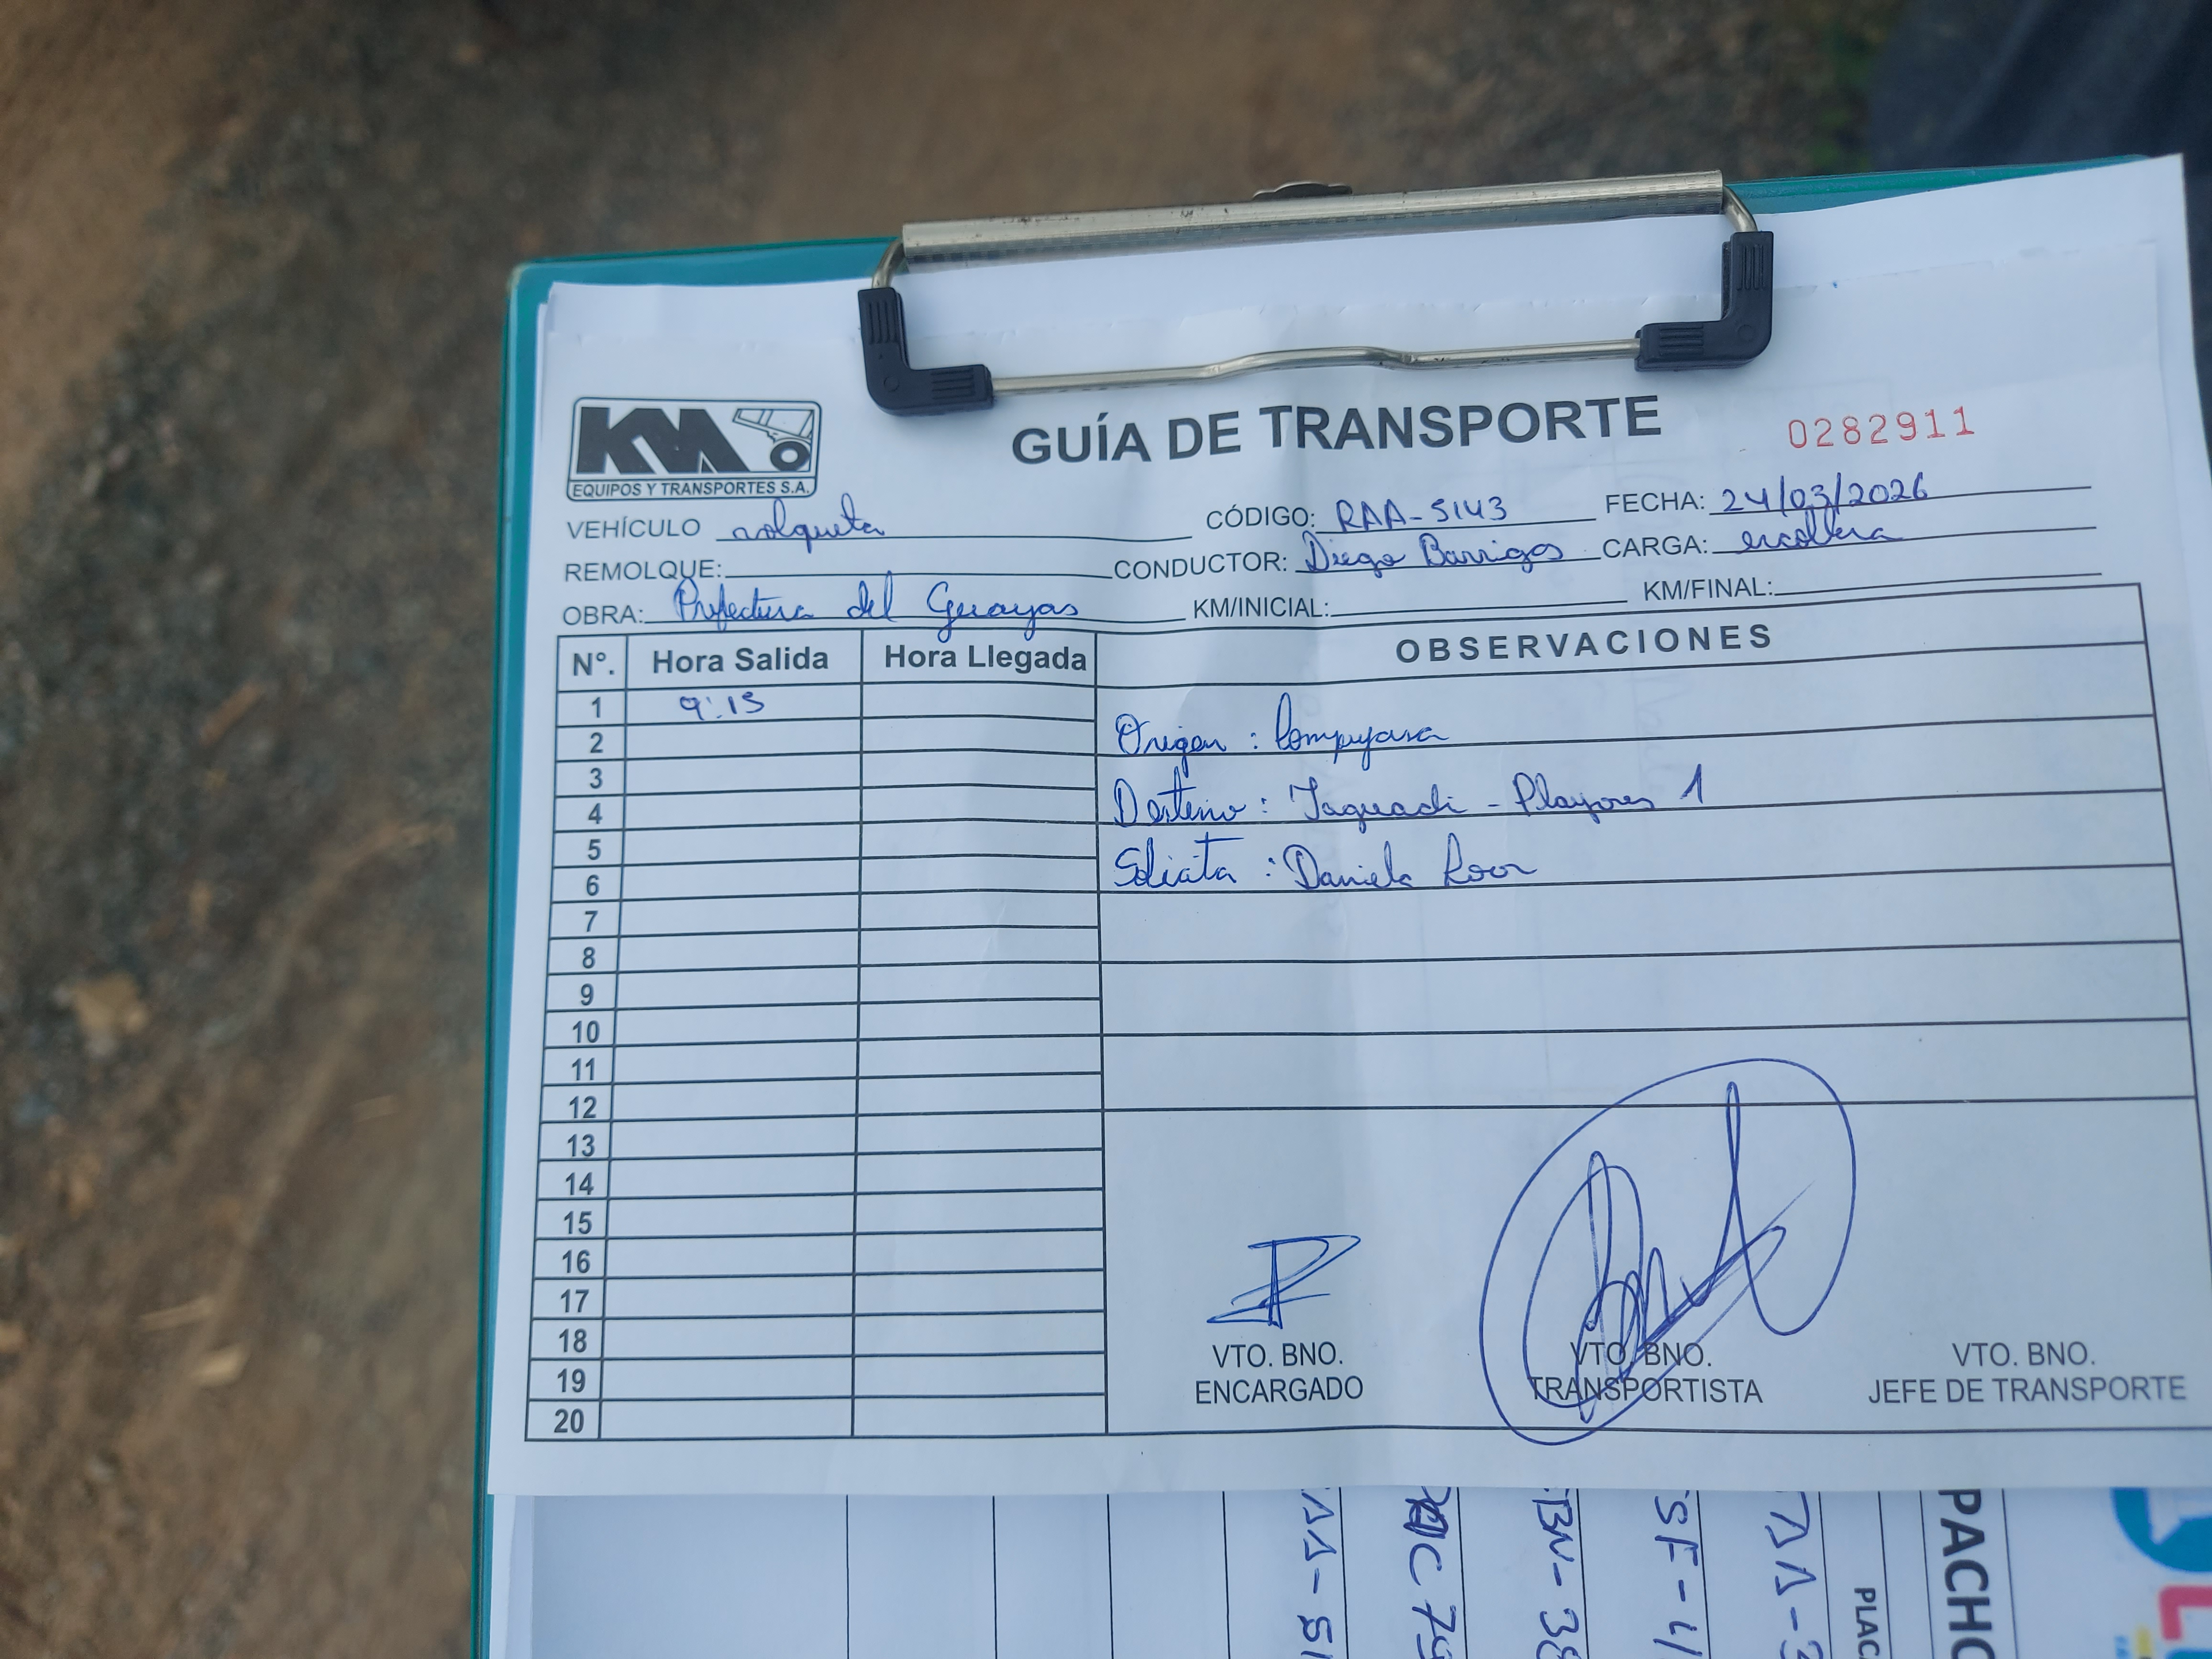 KM
EQUIPOS Y TRANSPORTES S.A.
GUÍA DE TRANSPORTE
0282911
VEHÍCULO volqueta CÓDIGO: RAA-5143 FECHA: 24/03/2026
REMOLQUE: CONDUCTOR: Diego Barrigas CARGA: escollera
OBRA: Prefectura del Guayas KM/INICIAL: KM/FINAL:
Nº. Hora Salida Hora Llegada OBSERVACIONES
1 9:15
2 Origen :
3
4 Destino : - Playones 1
5
6 Solicita : Daniela
7
8
9
10
11
12
13
14
15
16
17
18
19
20
VTO. BNO. ENCARGADO
VTO. BNO. TRANSPORTISTA
VTO. BNO. JEFE DE TRANSPORTE
PACHO
PLACA